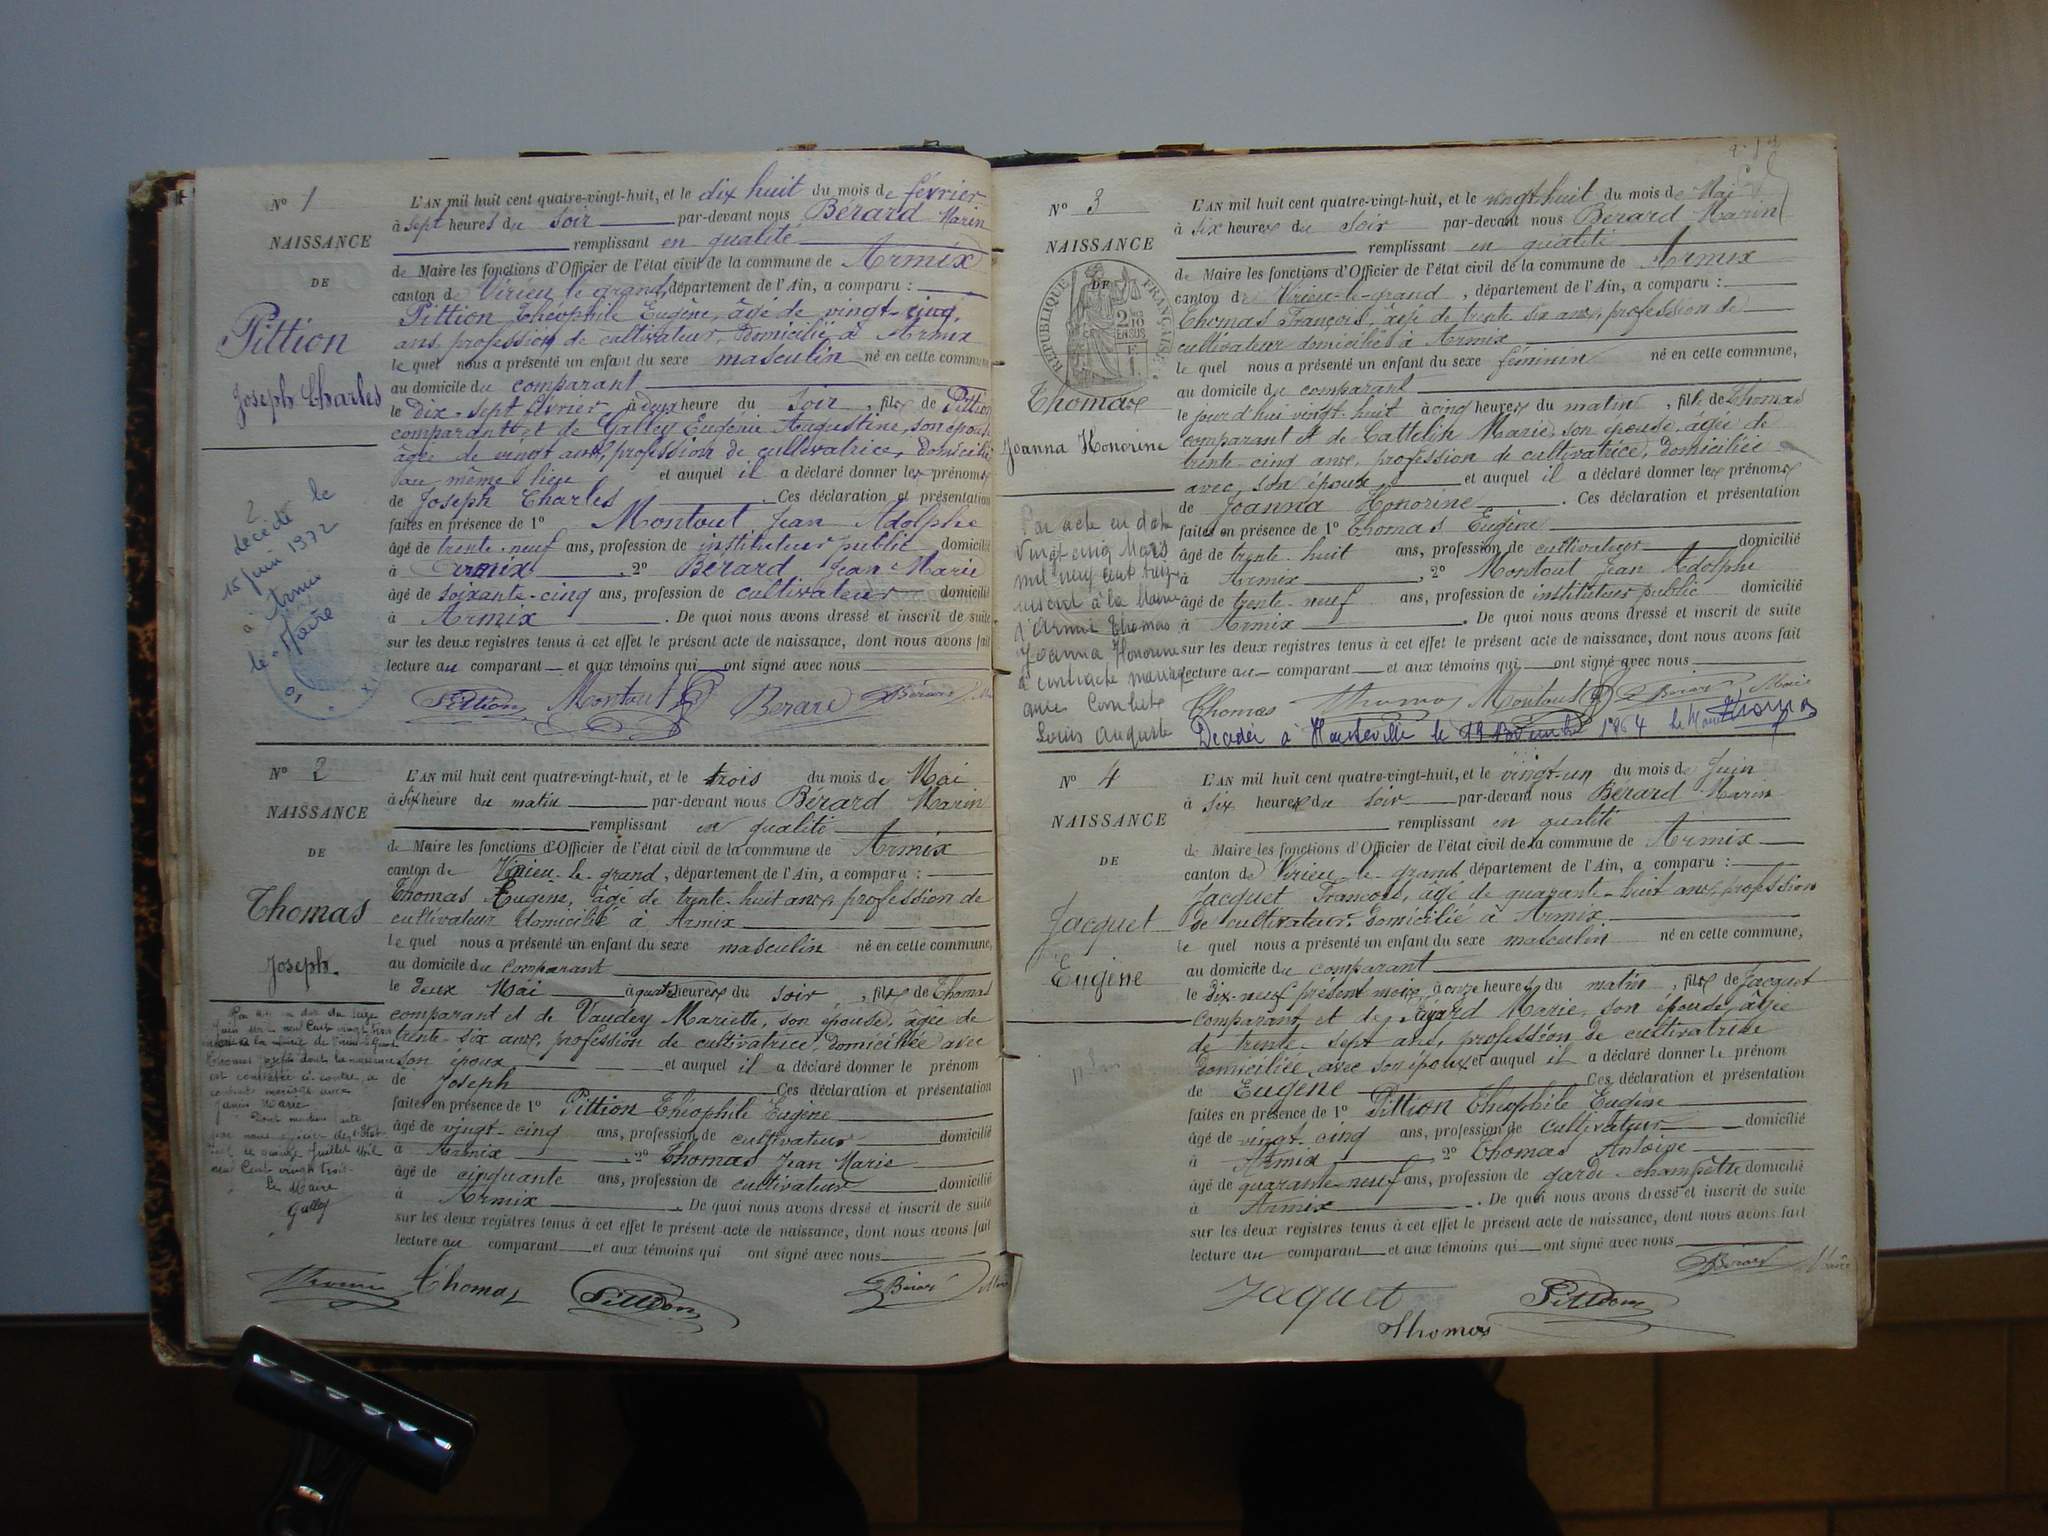 N° 1
NAISSANCE
DE
Pittion
Joseph Charles
décédé le
15 juin 1972
à Armix
le Maire
L'AN mil huit cent quatre-vingt-huit, et le dix huit du mois de février
à sept heures du soir par-devant nous Bérard Marin
remplissant en qualité
de Maire les fonctions d'Officier de l'état civil de la commune de Armix
canton de Virieu le grand, département de l'Ain, a comparu :
Pittion Théophile Eugène, âgé de vingt-cinq,
ans, profession de cultivateur, domicilié à Armix
le quel nous a présenté un enfant du sexe masculin né en cette commune
au domicile du comparant
le Dix-sept février à deux heure du soir, fils de Pittion
comparant et de Galley Eugénie Augustine, son épouse
âgée de vingt ans, profession de cultivatrice, domiciliée
au même lieu et auquel il a déclaré donner les prénoms
de Joseph Charles. Ces déclaration et présentation
faites en présence de 1° Montout Jean Adolphe
âgé de trente-neuf ans, profession de instituteur public domicilié
à Armix, 2° Bérard Jean Marie
âgé de soixante-cinq ans, profession de cultivateur domicilié
à Armix. De quoi nous avons dressé et inscrit de suite
sur les deux registres tenus à cet effet le présent acte de naissance, dont nous avons fait
lecture au comparant et aux témoins qui ont signé avec nous
Pittion Montout Berard Bérard
N° 2
NAISSANCE
DE
Thomas
Joseph.
Le Maire
Galley
L'AN mil huit cent quatre-vingt-huit, et le trois du mois de Mai
à six heure du matin par-devant nous Bérard Marin
remplissant en qualité
de Maire les fonctions d'Officier de l'état civil de la commune de Armix
canton de Virieu-le-grand, département de l'Ain, a comparu :
Thomas Eugène, âgé de trente-huit ans, profession de
cultivateur domicilié à Armix
le quel nous a présenté un enfant du sexe masculin né en cette commune,
au domicile du comparant
le deux Mai à quatre heures du soir, fils de Thomas
comparant et de Vaudey Mariette, son épouse, âgée de
trente-six ans, profession de cultivatrice domiciliée avec
son époux et auquel il a déclaré donner le prénom
de Joseph Ces déclaration et présentation
faites en présence de 1° Pittion Théophile Eugène
âgé de vingt-cinq ans, profession de cultivateur domicilié
à Armix, 2° Thomas Jean Marie
âgé de cinquante ans, profession de cultivateur domicilié
à Armix. De quoi nous avons dressé et inscrit de suite
sur les deux registres tenus à cet effet le présent acte de naissance, dont nous avons fait
lecture au comparant et aux témoins qui ont signé avec nous
Thomas Thomas Pittion Bérard
N° 3
NAISSANCE
DE
RÉPUBLIQUE FRANÇAISE
Thomas
Joanna Honorine
Par acte en date
vingt cinq Mars
mil neuf cent
inscrit à la Mairie
d'Armix Thomas
Joanna Honorine
a contracté mariage
avec Combet
Louis Auguste
L'AN mil huit cent quatre-vingt-huit, et le vingt-huit du mois de Mai
à six heures du soir par-devant nous Bérard Marin
remplissant en qualité
de Maire les fonctions d'Officier de l'état civil de la commune de Armix
canton de Virieu-le-grand, département de l'Ain, a comparu :
Thomas François, âgé de trente six ans, profession de
cultivateur domiciliés à Armix
le quel nous a présenté un enfant du sexe féminin né en cette commune,
au domicile du comparant
le jour d'hui vingt-huit à cinq heures du matin, fille de Thomas
comparant et de Cattelin Marie, son épouse, âgée de
trente-cinq ans, profession de cultivatrice, domiciliée
avec son époux et auquel il a déclaré donner les prénoms
de Joanna Honorine. Ces déclaration et présentation
faites en présence de 1° Thomas Eugène
âgé de trente-huit ans, profession de cultivateur domicilié
à Armix, 2° Montout Jean Adolphe
âgé de trente-neuf ans, profession de instituteur public domicilié
à Armix. De quoi nous avons dressé et inscrit de suite
sur les deux registres tenus à cet effet le présent acte de naissance, dont nous avons fait
lecture au comparant et aux témoins qui ont signé avec nous
Thomas Thomas Montout Bérard Maire
Décédée à Hauteville le 19 Novembre 1964 le Maire
N° 4
NAISSANCE
DE
Jacquet
Eugène
L'AN mil huit cent quatre-vingt-huit, et le vingt-un du mois de Juin
à six heures du soir par-devant nous Bérard Marin
remplissant en qualité
de Maire les fonctions d'Officier de l'état civil de la commune de Armix
canton de Virieu-le-grand département de l'Ain, a comparu :
Jacquet François, âgé de quarant-huit ans, profession
de cultivateur, domicilié à Armix
le quel nous a présenté un enfant du sexe masculin né en cette commune,
au domicile du comparant
le dix-neuf présent mois à onze heures du matin, fils de Jacquet
comparant et de Marie, son épouse, âgée
de trente-sept ans, profession de cultivatrice
domiciliée avec son époux et auquel il a déclaré donner le prénom
de Eugène Ces déclaration et présentation
faites en présence de 1° Pittion Théophile Eugène
âgé de vingt-cinq ans, profession de cultivateur domicilié
à Armix 2° Thomas Antoine
âgé de quarante-neuf ans, profession de garde-champêtre domicilié
à Armix. De quoi nous avons dressé et inscrit de suite
sur les deux registres tenus à cet effet le présent acte de naissance, dont nous avons fait
lecture au comparant et aux témoins qui ont signé avec nous
Bérard Maire
Jaquet Pittion
Thomas